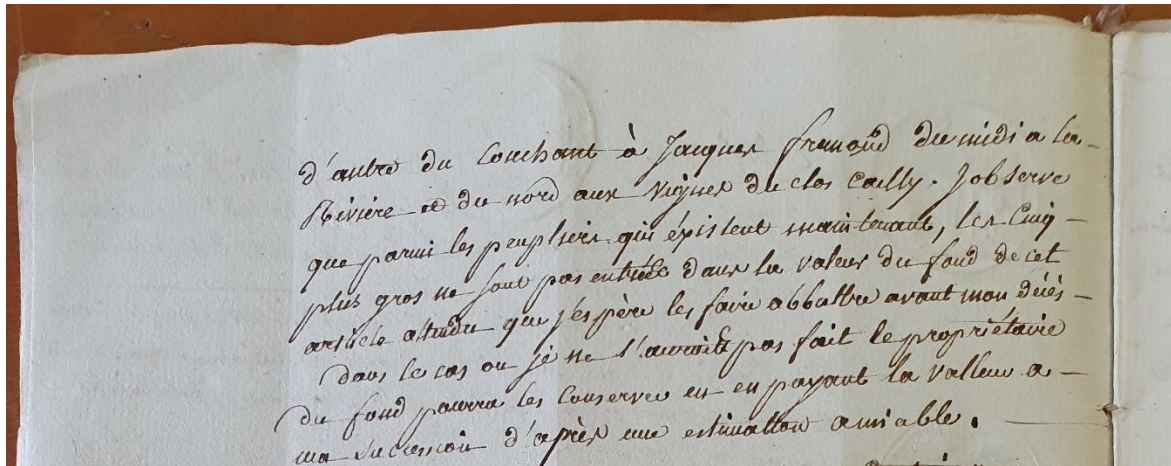 d'autre du Couchant à Jacques fremond du midi a la
Rivière et du nord aux vignes du clos Cailly. J'observe
que parmi les peupliers qui éxistent maintenant, les Cinq
plus gros ne sont pas entrés dans la valeur du fond de cet
article attendu que j'espère les faire abbattre avant mon décés
dans le cas ou je ne l'aurois pas fait le propriétaire
du fond pourra les Conserver en en payant la valleur a
ma Succession d'après une estimation amiable.